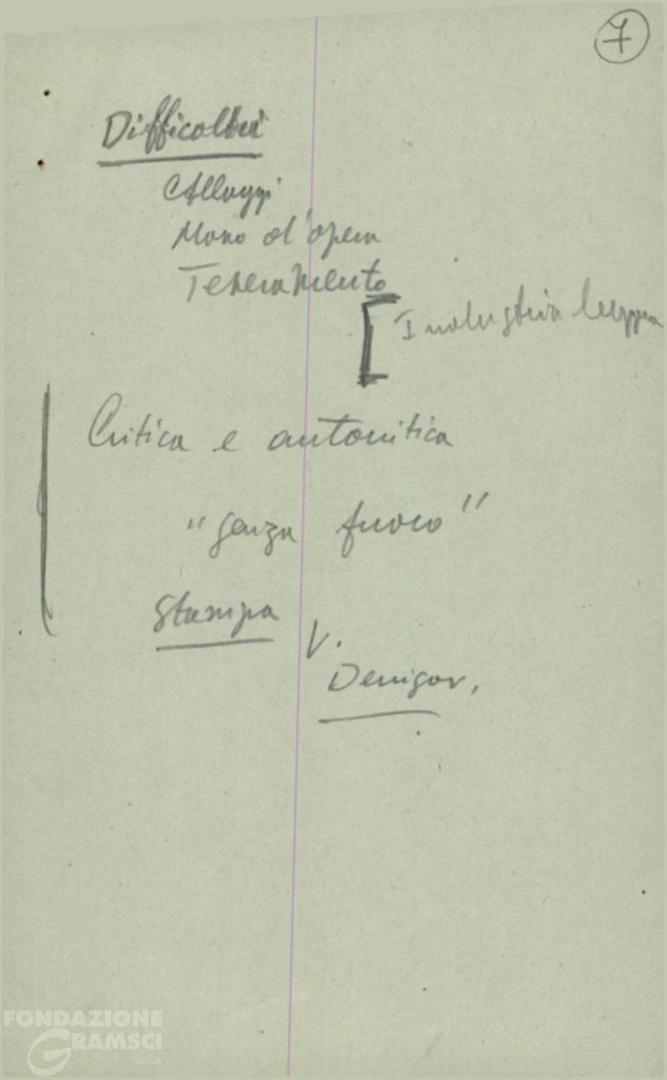 7
Difficoltà
Alloggi
Mano d'opera
Tesseramento
[ Industria leggera
Critica e autocritica
"senza fuoco"
Stampa
V.
Denigor.
FONDAZIONE
GRAMSCI
onlus